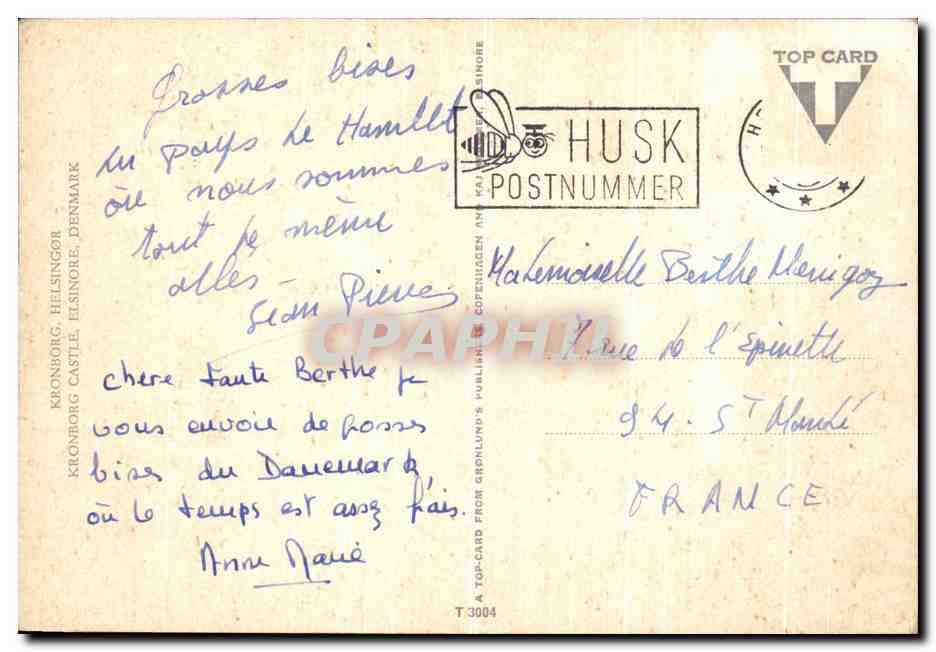 KRONBORG, HELSINGØR
KRONBORG CASTLE, ELSINORE, DENMARK
Grosses bises
du pays de Hamlet
où nous sommes
tout de même
allés
Jean Pierre
chère tante Berthe je
vous envoie de grosses
bises du Danemark,
où le temps est assez frais.
Anne Marie
A TOP-CARD FROM GRØNLUND'S PUBLISHERS, COPENHAGEN AND KAJ ELSINORE
T 3004
HUSK
POSTNUMMER
H
TOP CARD
T
Mademoiselle Berthe Menigoz
7 rue de l'Epinette
94. St Mandé
FRANCE
CPAPHIL